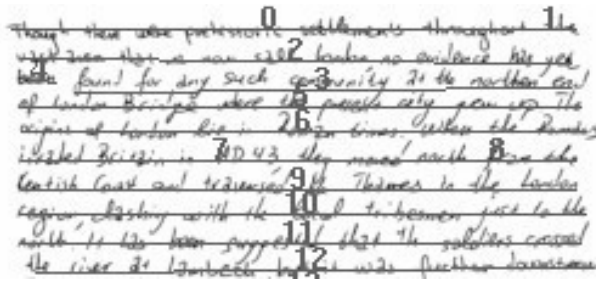 Though there were prehistoric settlements throughout the
vast area that is now call London no evidence has yet
been found for any such community at the northern end
of London Bridge where the present city grew up. The
origins of London lie in Roman times. When the Romans
invaded Britain in AD 43 they moved north from the
Kentish Coast and traversed the Thames in the London
region, clashing with the local tribesmen just to the
north. It has been suggested that the soldiers crossed
the river at Lambeth, but it was further downstream